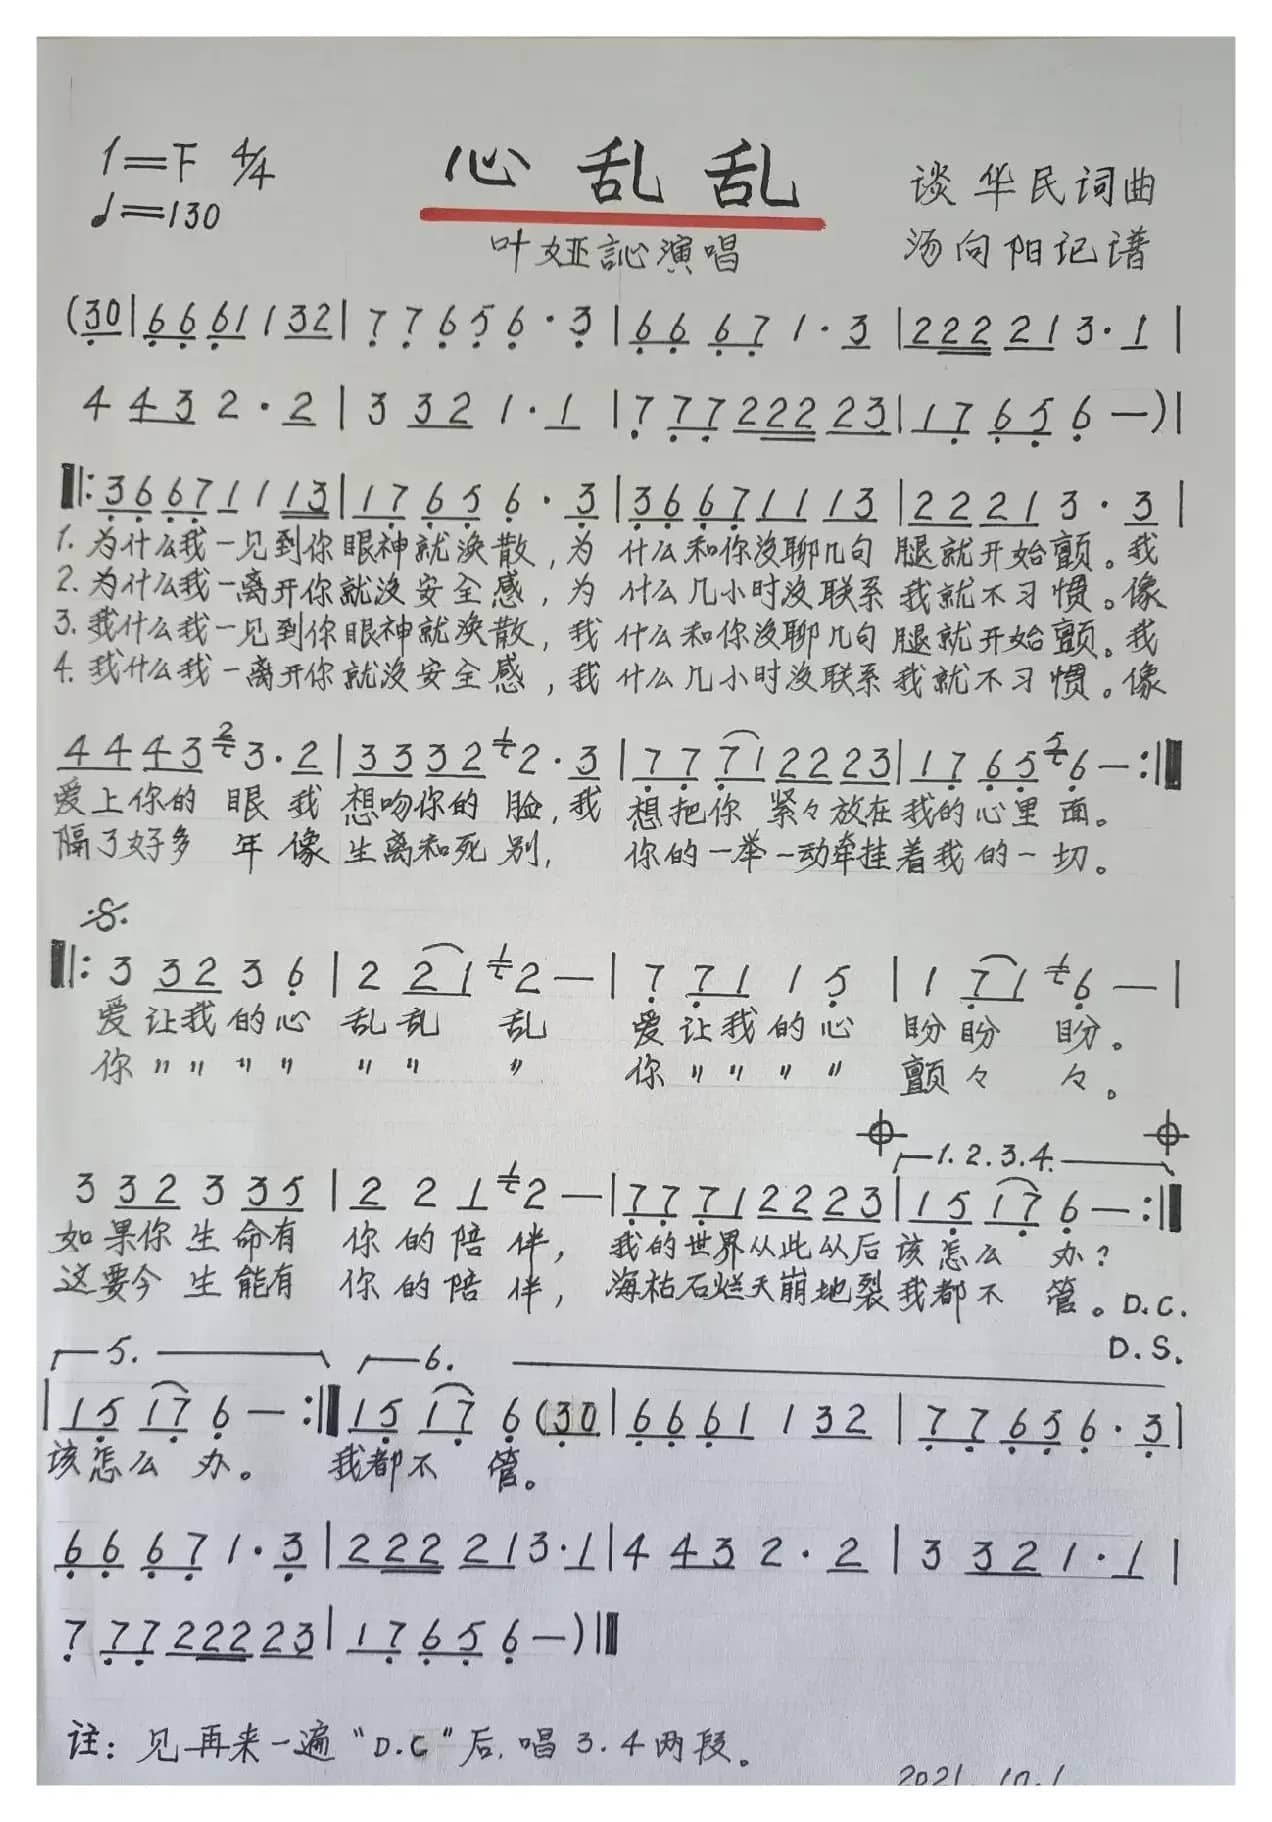 1=F 4/4
心乱乱
谈华民词曲
♩=130
叶娅訫演唱
汤向阳记谱
(30|6661 132|77656·3|66671·3|222213·1|
4432·2|3321·1|77722223|17656—)|
‖:36671113|17656·3|36671113|22213·3|
1.为什么我一见到你眼神就涣散,为什么和你没聊几句腿就开始颤。我
2.为什么我一离开你就没安全感,为什么几小时没联系我就不习惯。像
3.我什么我一见到你眼神就涣散,我什么和你没聊几句腿就开始颤。我
4.我什么我一离开你就没安全感,我什么几小时没联系我就不习惯。像
4443 2 3·2|3332 1 2·3|77712223|1765 5 6—:‖
爱上你的眼我想吻你的脸,我想把你紧々放在我的心里面。
隔了好多年像生离和死别,你的一举一动牵挂着我的一切。
𝄋
‖:33236|221 1 2—|77115|171 1 6—|
爱让我的心乱乱乱爱让我的心盼盼盼。
你〃〃〃〃〃〃〃你〃〃〃〃颤々々。
𝄌 1.2.3.4. 𝄌
332335|221 1 2—|77712223|15176—:‖
如果你生命有你的陪伴,我的世界从此从后该怎么办?
这要今生能有你的陪伴,海枯石烂天崩地裂我都不管。D.C.
D.S.
5. 6.
|15176—:‖15176(30|6661132|77656·3|
该怎么办。我都不管。
66671·3|222213·1|4432·2|3321·1|
77722223|17656—)‖
註:见再来一遍“D.C”后,唱3.4两段。
2021.10.1